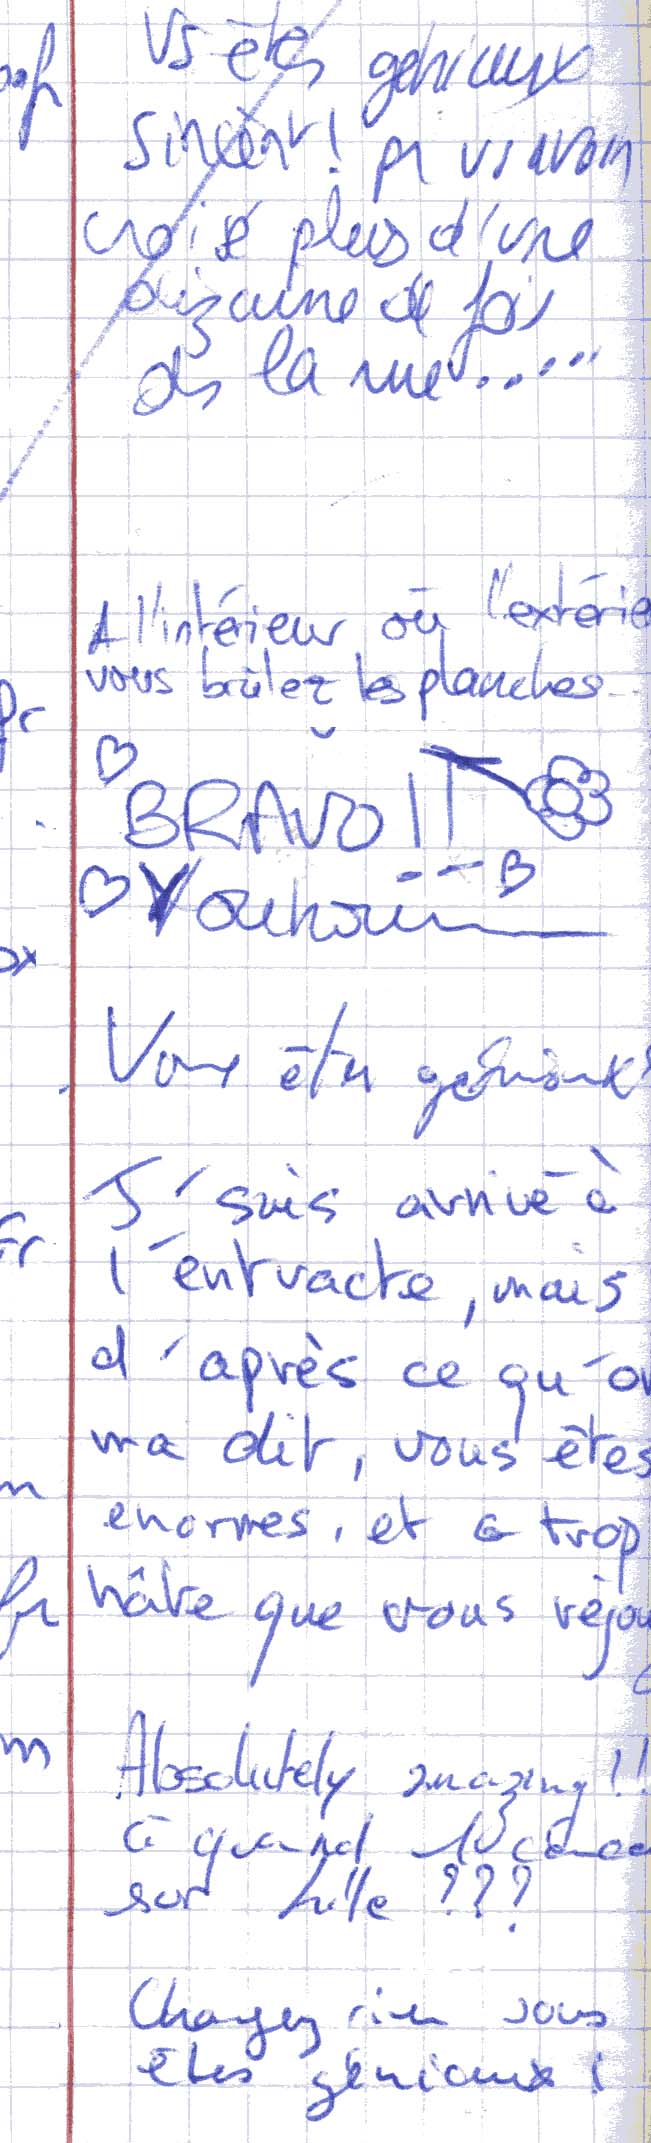 Vs êtes géniaux
Sincèrt! pr vs avoir
croisé plus d'une
dizaine de fois
ds la rue.....
A l'intérieur où l'extérie
vous brûlez les planches
BRAVO!!
Youhouu
Vous êtes géniaux
J'suis arrivé à
l'entracte, mais
d'après ce qu'on
ma dit, vous êtes
enormes, et a trop
hâte que vous réjou
Absolutely amazing!!
à quand
sur Lille ???
Changez rien vous
êtes géniaux!
fr
m
fr
m